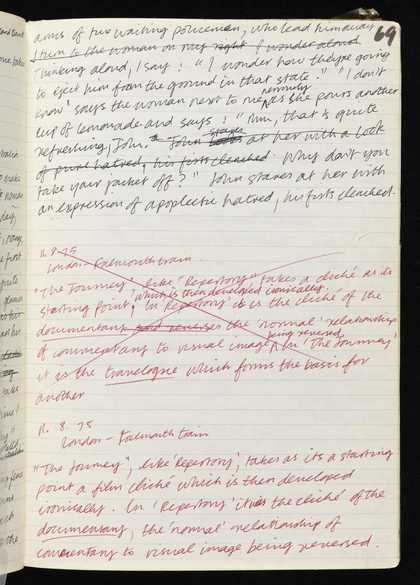 69
arms of two waiting policemen, who lead him away
I turn to the woman on my right I wonder aloud
Thinking aloud, I say: "I wonder how they're going
to eject him from the ground in that state." "I don't
know" says the woman next to me, as she pours another
cup of lemonade and says: "Mm, that is quite
refreshing, John." John stares looks at her with a look
of pure hatred, his fists clenched. Why don't you
take your jacket off?" John stares at her with
an expression of apoplectic hatred, his fists clenched.
11.8.75
London – Falmouth train.
"The Journey", like 'Repertory' takes a cliché as its
starting point, which is then developed ironically. In 'Repertory' it is the cliché of the
documentary and reverses the 'normal' relationship
of commentary to visual image being reversed. In 'The Journey'
it is the travelogue which forms the basis for
another
11. 8. 75
London – Falmouth train
"The Journey", like 'Repertory', takes as its a starting
point a film cliché which is then developed
ironically. In 'Repertory' it is the cliché of the
documentary, the 'normal' relationship of
commentary to visual image being reversed.